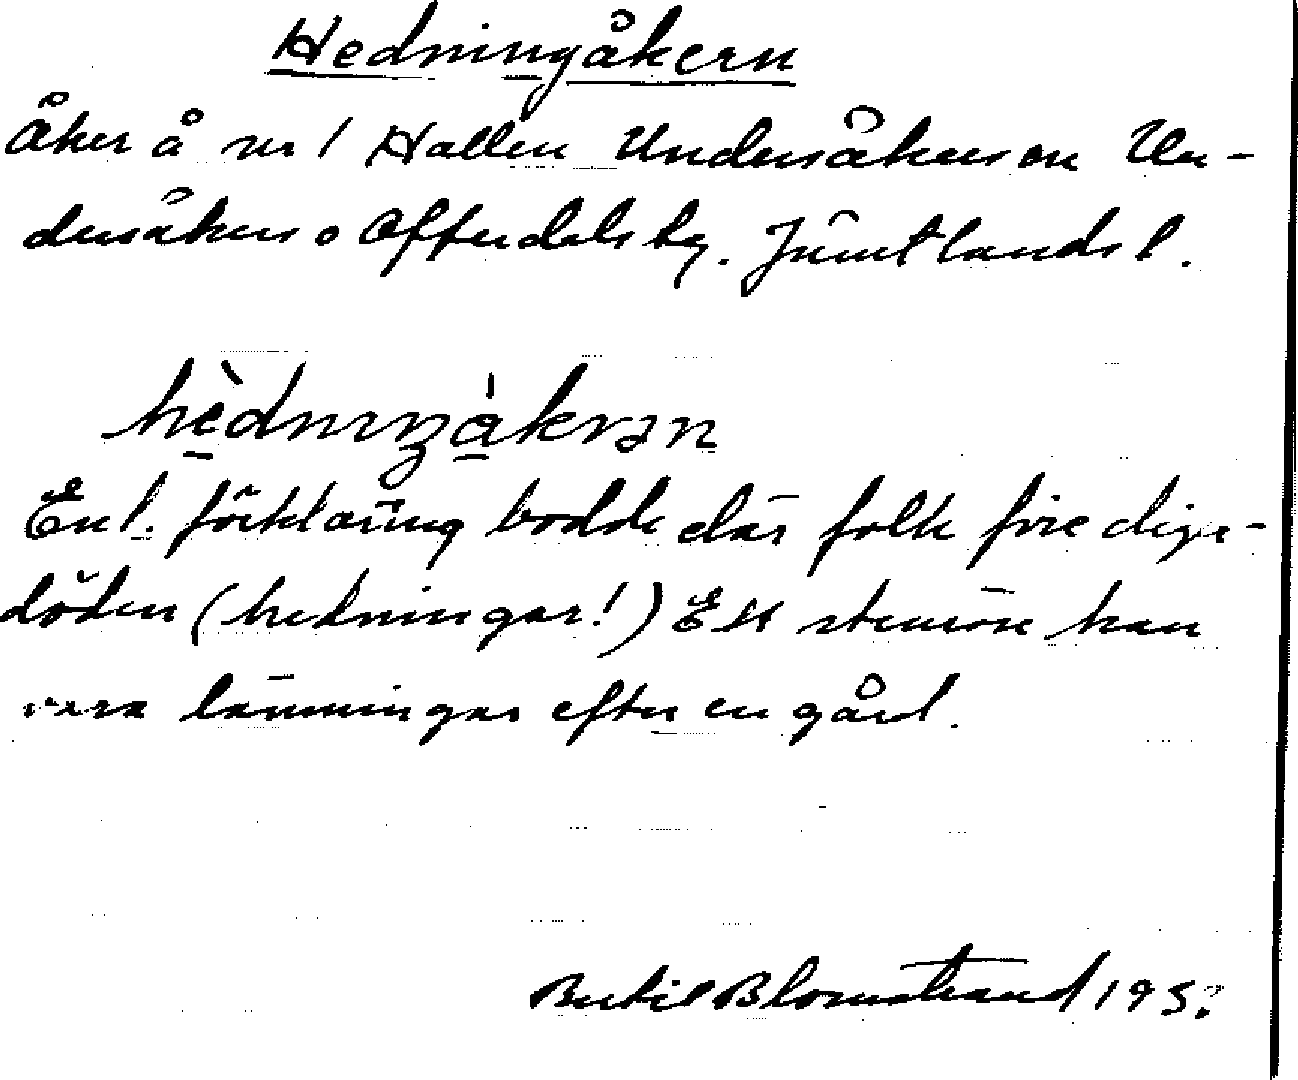 Hedningåkern
Åker å nr 1 Hallen Undersåkers sn Un-
dersåkers o Offerdals tg. Jämtlands l.
hèdnıŋàkrən
Enl. förklaring bodde där folk före diger-
döden (hedningar!) Ett stenröse kan
vara lämningar efter en gård.
Bertil Blomstrand 195